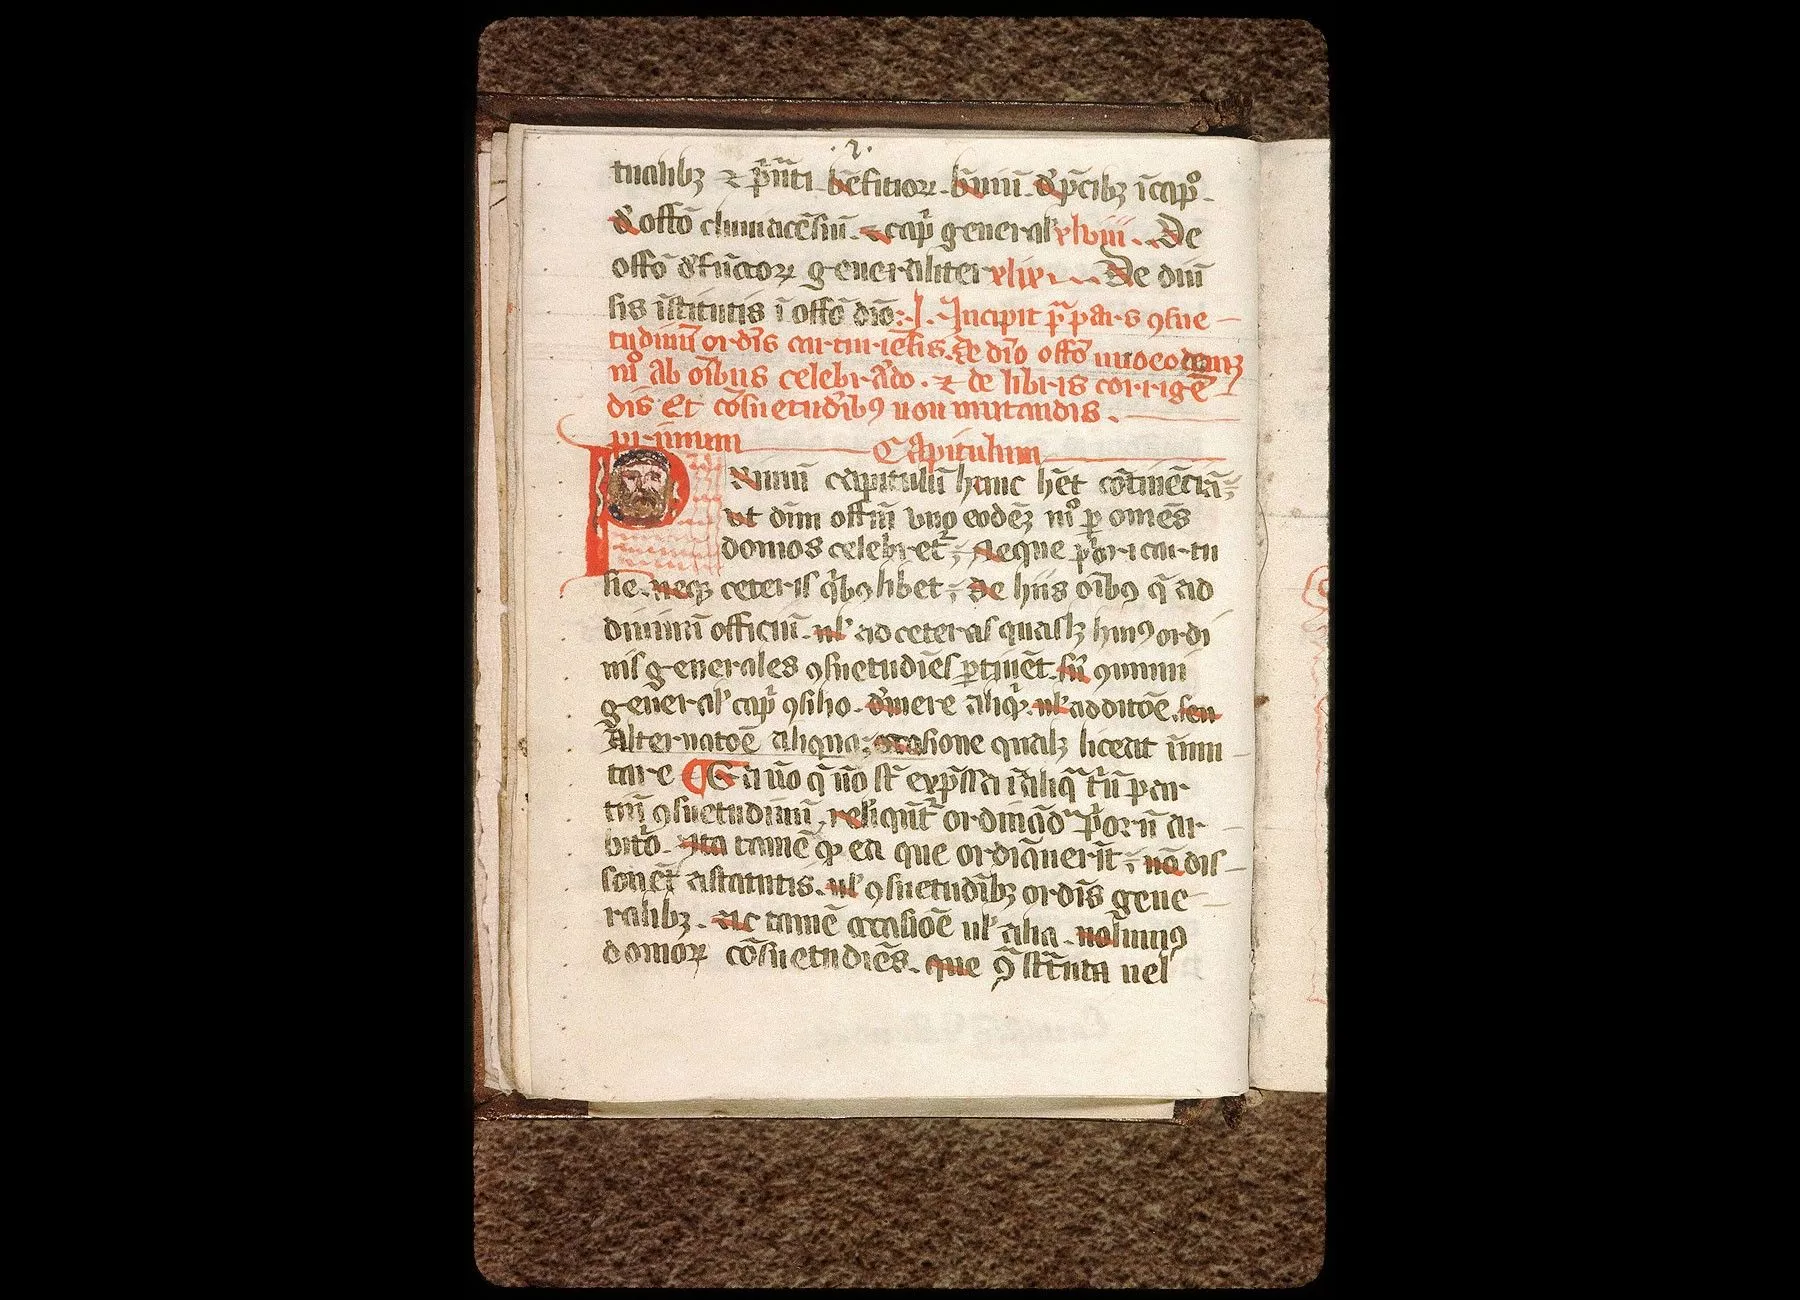 .2.
tualibꝫ ⁊ p̄nti bn̄fitioꝝ. bꝛuiū. & p̄cibꝫ ī cap̊.
& offō chmiacēsiū. ⁊ cap̄ general' xlviii. De
offō defūctoꝝ generaliter xlix De diu
sis īstitutis ī offō dīo: l. Incipit pᵃ pars ꝯsue
tudinū ordīs cartusiēsis. de dīo offō uno eodemqꝫ
mº ab oībus celebrādo. ⁊ de libris corrigē
dis Et cōsuetudībꝯ non mutandis.
primum Capitulum
Primū capitulū hanc hēt cōtinētiā
ut dīm offm̄ uno eodēꝫ mº ꝑ omēs
domos celebret᷑. neque priori cartu
sie. neqꝫ ceteris qⁱbꝯlibet. de hiis oībꝯ q̄ ad
diuinū officiū. ul' ad ceteras quaslꝫ huiꝯ ordi
nis generales ꝯsuetudiēs ꝑtinēt. sn̄ ꝯmuni
general' cap̄ ꝯsilio. dimere aliqⁱ. ul' additōe. seu
alternatōe aliqua. occasione qualꝫ liceat īmu
tare ¶ Ea u̅o q̄ nō st̄ exp̄ssa ī aliq̄ triū par
tiū ꝯsuetudinū, reliqūt᷑ ordināda p̄oꝝ ar
bitō. Ita tamē ꝙ ea que ordīauerīt. nō dis
sonēt a statutis. ul' ꝯsuetudībꝫ ordīs gene
ralibꝫ. ac tamē occasiōe ul' alia. nolumꝯ
domoꝝ cōsuetudiēs. que ꝯstituta uel